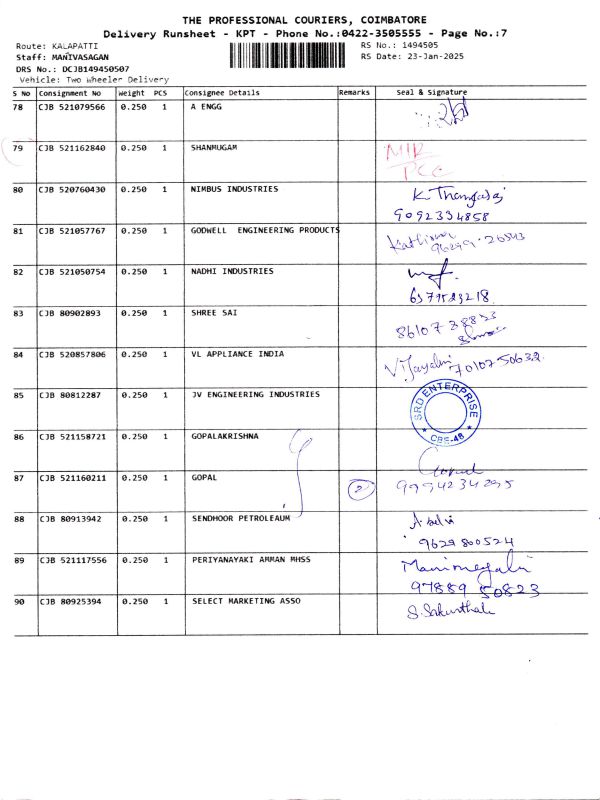 THE PROFESSIONAL COURIERS, COIMBATORE
Delivery Runsheet - KPT - Phone No.:0422-3505555 - Page No.:7
Route: KALAPATTI RS No.: 1494505
Staff: MANIVASAGAN RS Date: 23-Jan-2025
DRS No.: DCJB149450507
Vehicle: Two Wheeler Delivery
S No Consignment No Weight PCS Consignee Details Remarks Seal & Signature
78 CJB 521079566 0.250 1 A ENGG
79 CJB 521162840 0.250 1 SHANMUGAM MIR
PCC
80 CJB 520760430 0.250 1 NIMBUS INDUSTRIES K. Thangaraj
9092334858
81 CJB 521057767 0.250 1 GODWELL ENGINEERING PRODUCTS
82 CJB 521050754 0.250 1 NADHI INDUSTRIES
83 CJB 80902893 0.250 1 SHREE SAI
84 CJB 520857806 0.250 1 VL APPLIANCE INDIA 7010750632
85 CJB 80812287 0.250 1 JV ENGINEERING INDUSTRIES SRD ENTERPRISE
CBE-48
86 CJB 521158721 0.250 1 GOPALAKRISHNA
87 CJB 521160211 0.250 1 GOPAL 2 Gopal
9994234295
88 CJB 80913942 0.250 1 SENDHOOR PETROLEAUM
9629800524
89 CJB 521117556 0.250 1 PERIYANAYAKI AMMAN MHSS Manimegalai
97889 50823
90 CJB 80925394 0.250 1 SELECT MARKETING ASSO S. Sakunthala